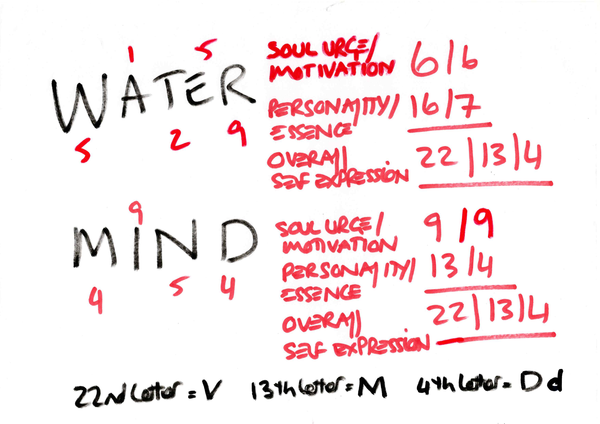 1 5
WATER
5 2 9
SOUL URGE/
MOTIVATION 6/6
PERSONALITY/
ESSENCE 16/7
OVERALL
SELF EXPRESSION 22/13/4
9
MIND
4 5 4
SOUL URGE/
MOTIVATION 9/9
PERSONALITY/
ESSENCE 13/4
OVERALL
SELF EXPRESSION 22/13/4
22nd letter = V 13th letter = M 4th letter = D d